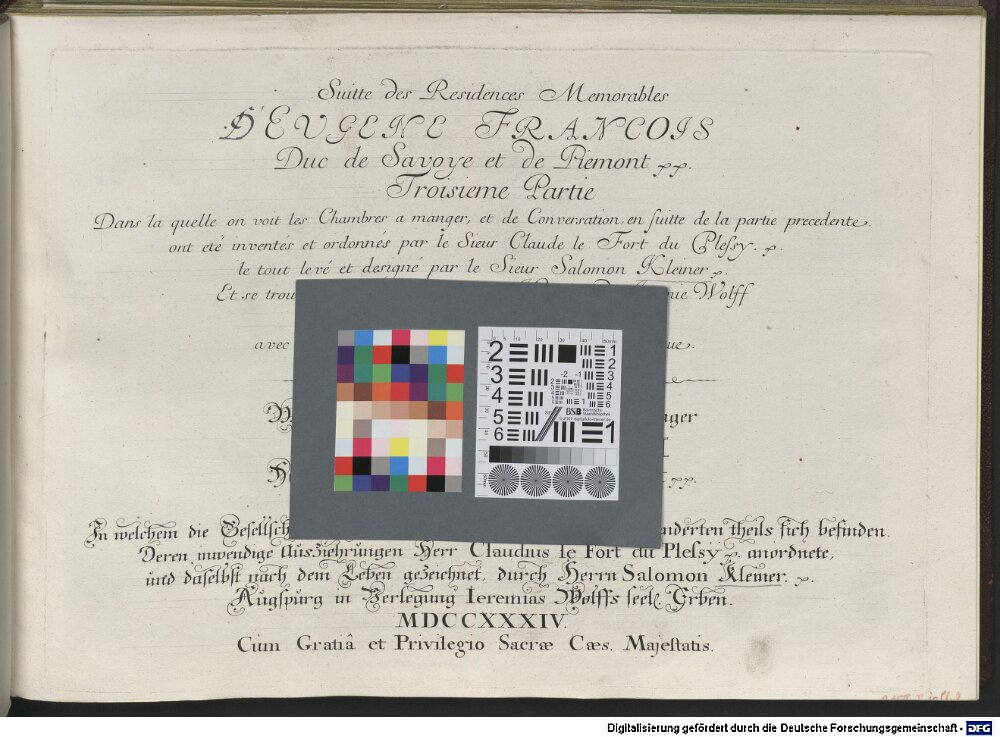 Suitte des Residences Memorables
D'EUGENE FRANCOIS
Duc de Savoye et de Piemont pp.
Troisieme Partie
Dans la quelle on voit les Chambres a manger, et de Conversation, en suitte de la partie precedente,
ont eté inventés et ordonnés par le Sieur Claude le Fort du Plessy. p.
le tout levé et designé par le Sieur Salomon Kleiner p.
Et se trou Wolff
avec
In welchem die nderten theils sich befinden.
Deren inwendige Ausziehrungen Herr Claudius le Fort du Plessy p. anordnete,
und daselbst nach dem Leben gezeichnet durch Herrn Salomon Kleiner. p.
Augspurg in Verlegung Ieremias Wolffs seel. Erben.
MDCCXXXIV.
Cum Gratiâ et Privilegio Sacræ Cæs. Majestatis.
2
3
4
5
6
-2 -1
1
2
3
4
5
6
BSB
1
Digitalisierung gefördert durch die Deutsche Forschungsgemeinschaft - DFG